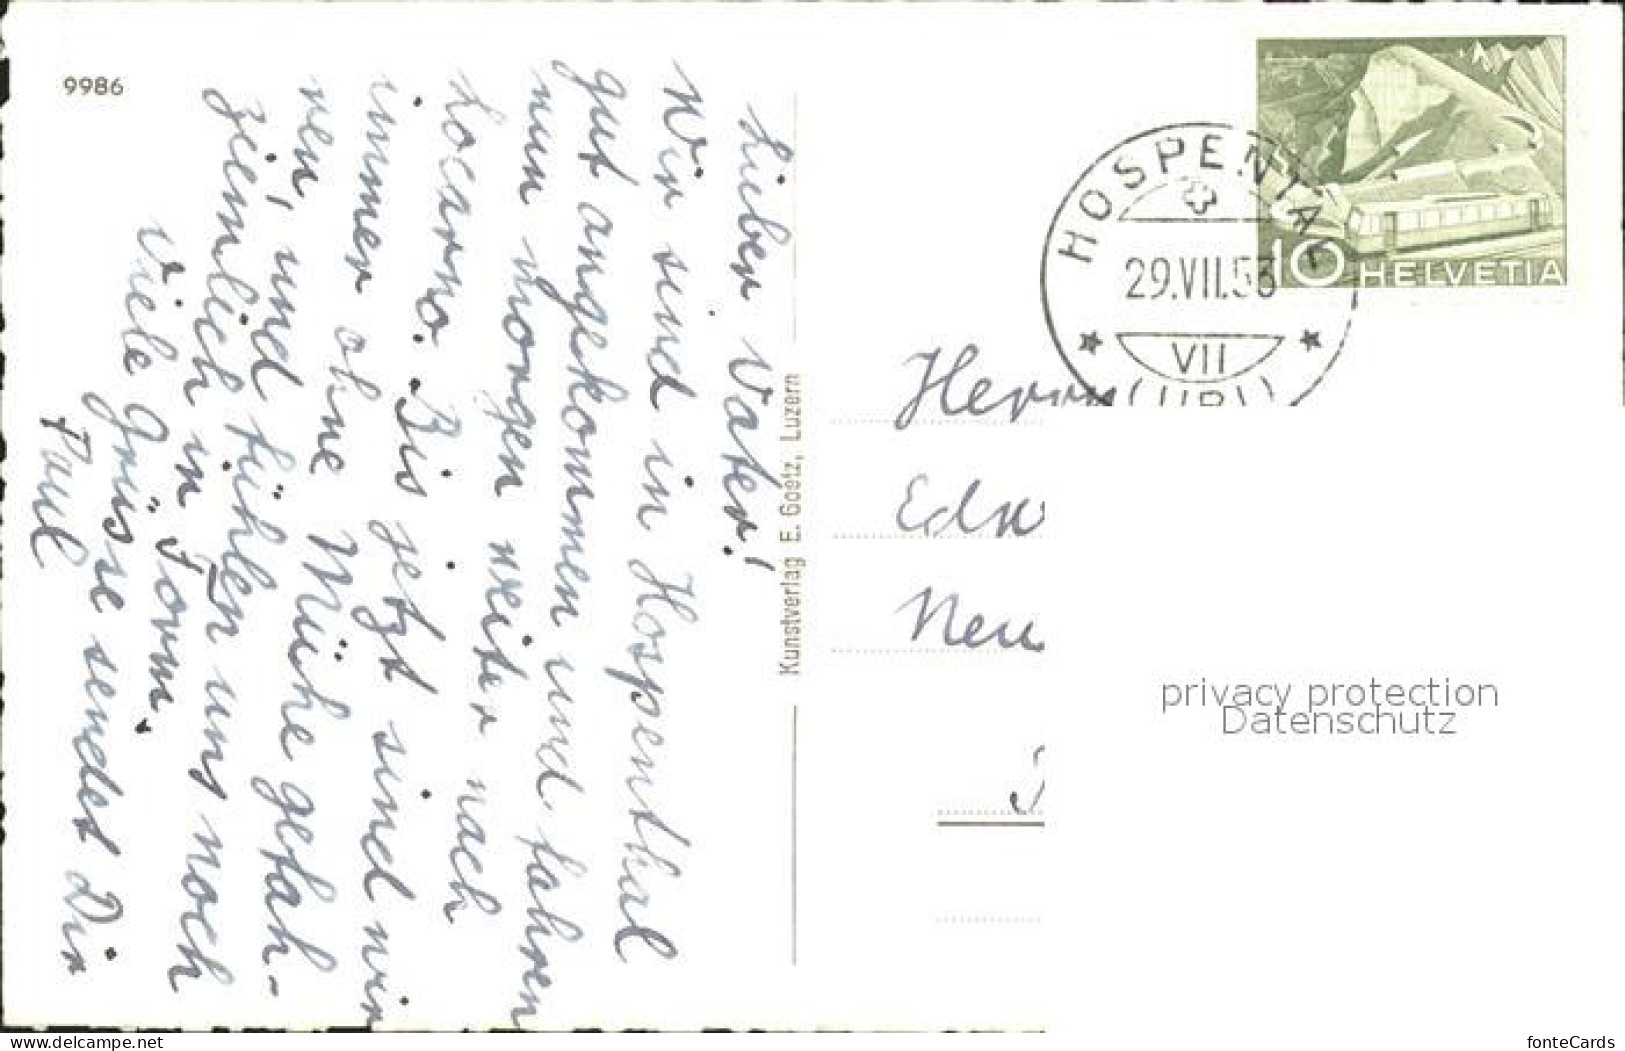 9986
Lieber Vater!
Wir sind in Hospenthal
gut angekommen und fahren
nun morgen weiter nach
Locarno. Bis jetzt sind wir
immer ohne Mühe gefah-
ren, und fühlen uns noch
ziemlich in Form.
Viele Grüsse sendet Dir
Paul
Kunstverlag E. Goetz, Luzern
HOSPENTAL
29.VII.53
VII
(URI)
10 HELVETIA
Herrn
Edw
Neu
privacy protection
Datenschutz
www.ansichtskartenversand.com
fonteCards